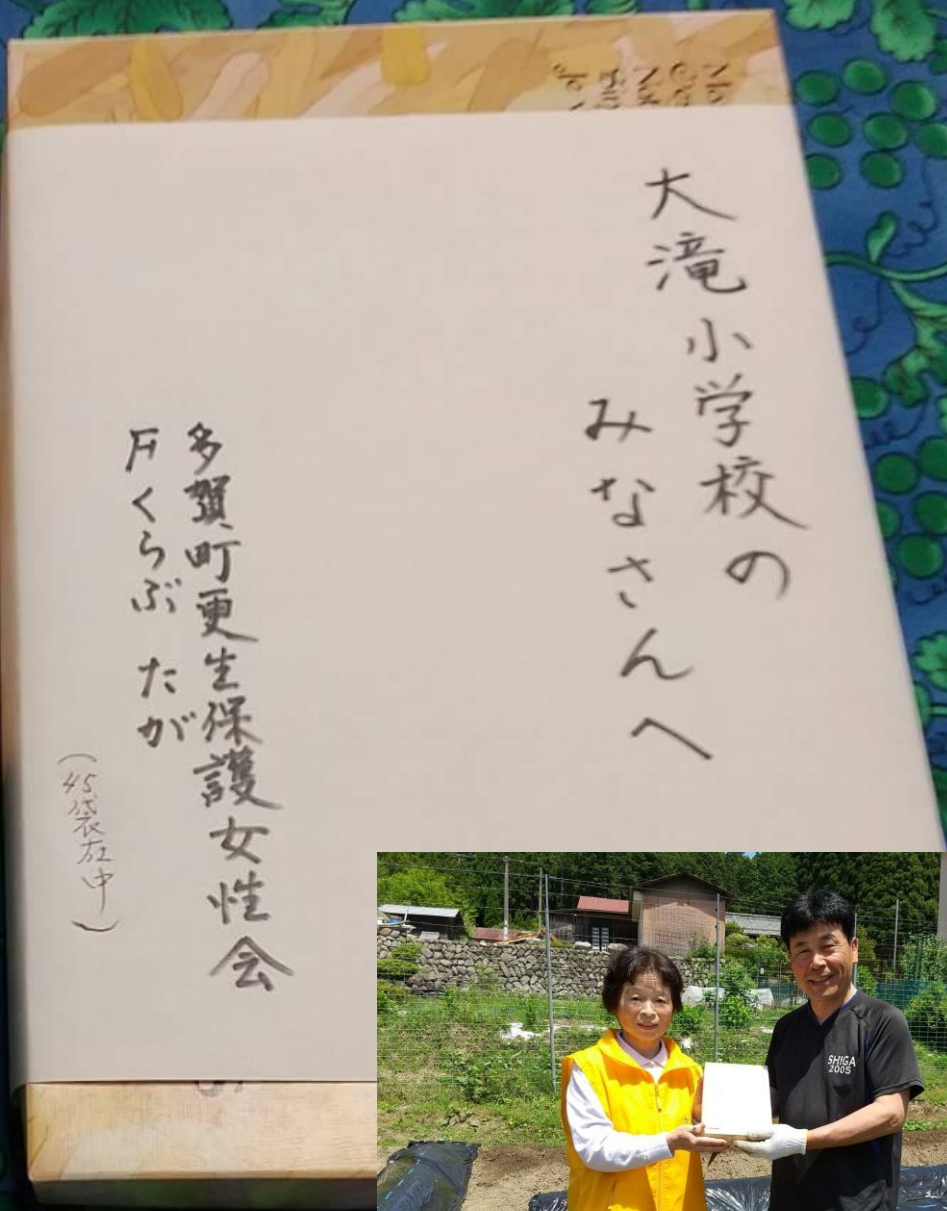 大滝小学校の
みなさんへ
多賀町更生保護女性会
F くらぶ たが
(45袋在中)
SHIGA
2005